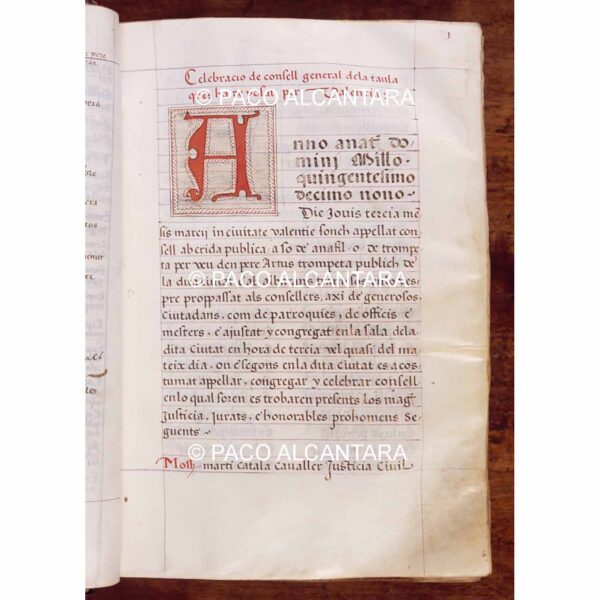 1
Celebracio de consell general dela taula
© PACO ALCANTARA
per Valencia
A
nno a nat̃ do
mini Millo
quingentesimo
decimo nono
Die Jovis tercia me
sis marcii in ciuitate valentie fonch appellat con
sell ab crida publica a so de anafil o de trompe
ta per veu den pere Artus trompeta publich de
la
© PACO ALCANTARA
pre proppassat als consellers, axi de generosos
Ciutadans, com de parroquies, de officis e
mesters. e ajustat y congregat en la sala dela
dita Ciutat en hora de tercia vel quasi del ma
teix dia, on e segons en la dita Ciutat es acos
tumat appellar, congregar y celebrar consell
en lo qual foren es trobaren presents los mag̃
Justicia, Jurats, e honorables prohomens Se
guents
© PACO ALCANTARA
Moss. marti catala cavaller Justicia Civil